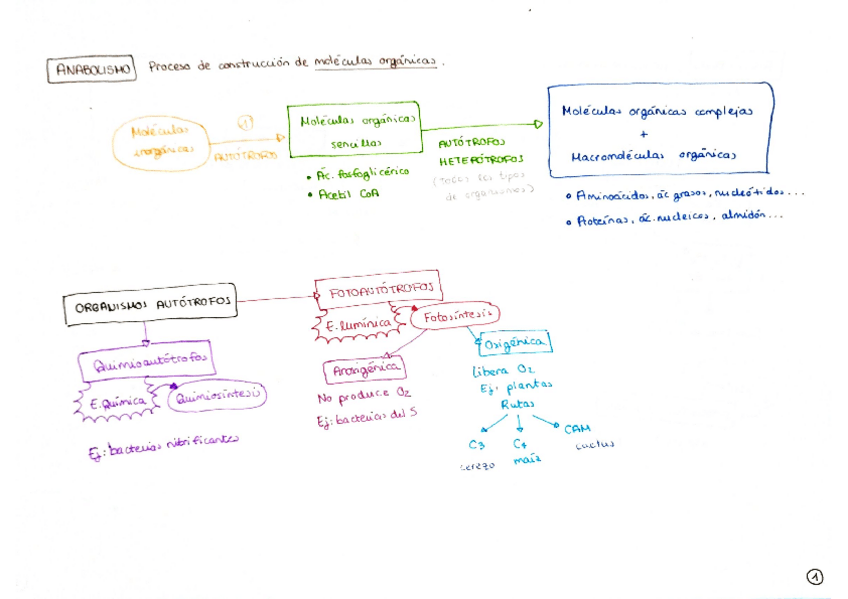 ANABOLISMO Proceso de construcción de moléculas orgánicas.
Moléculas
inorgánicas
1
AUTÓTROFOS
Moléculas orgánicas
sencillas
• Ác. fosfoglicérico
• Acetil CoA
AUTÓTROFOS
HETERÓTROFOS
(Todos los tipos
de organismos)
Moléculas orgánicas complejas
+
Macromoléculas orgánicas
• Aminoácidos, ác grasos, nucleótidos...
• Proteínas, ác. nucleicos, almidón...
ORGANISMOS AUTÓTROFOS
FOTOAUTÓTROFOS
E. lumínica
Fotosíntesis
Quimioautótrofos
E. Química
Quimiosíntesis
Ej: bacterias nitrificantes
Anoxigénica
No produce O2
Ej: bacterias del S
Oxigénica
Libera O2
Ej: plantas
Rutas
C3
cerezo
C4
maíz
CAM
cactus
1